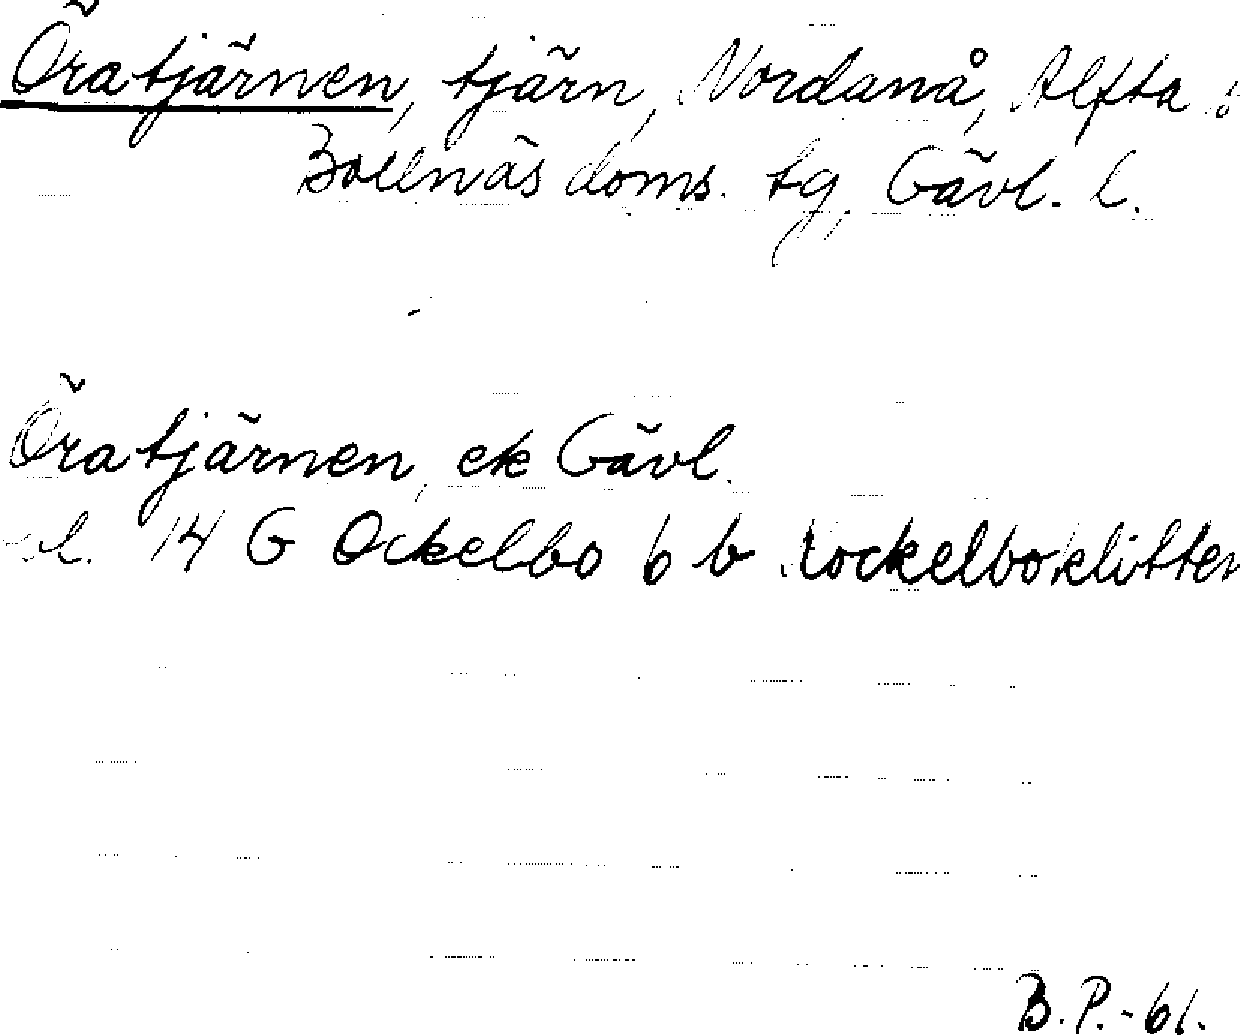 Öratjärnen, tjärn, Nordanå, Alfta s
Bollnäs doms. tg, Gävl. l.
Öratjärnen, ek Gävl.
l. 14 G Ockelbo 6 b Lockelboklitten
B.P.-61.